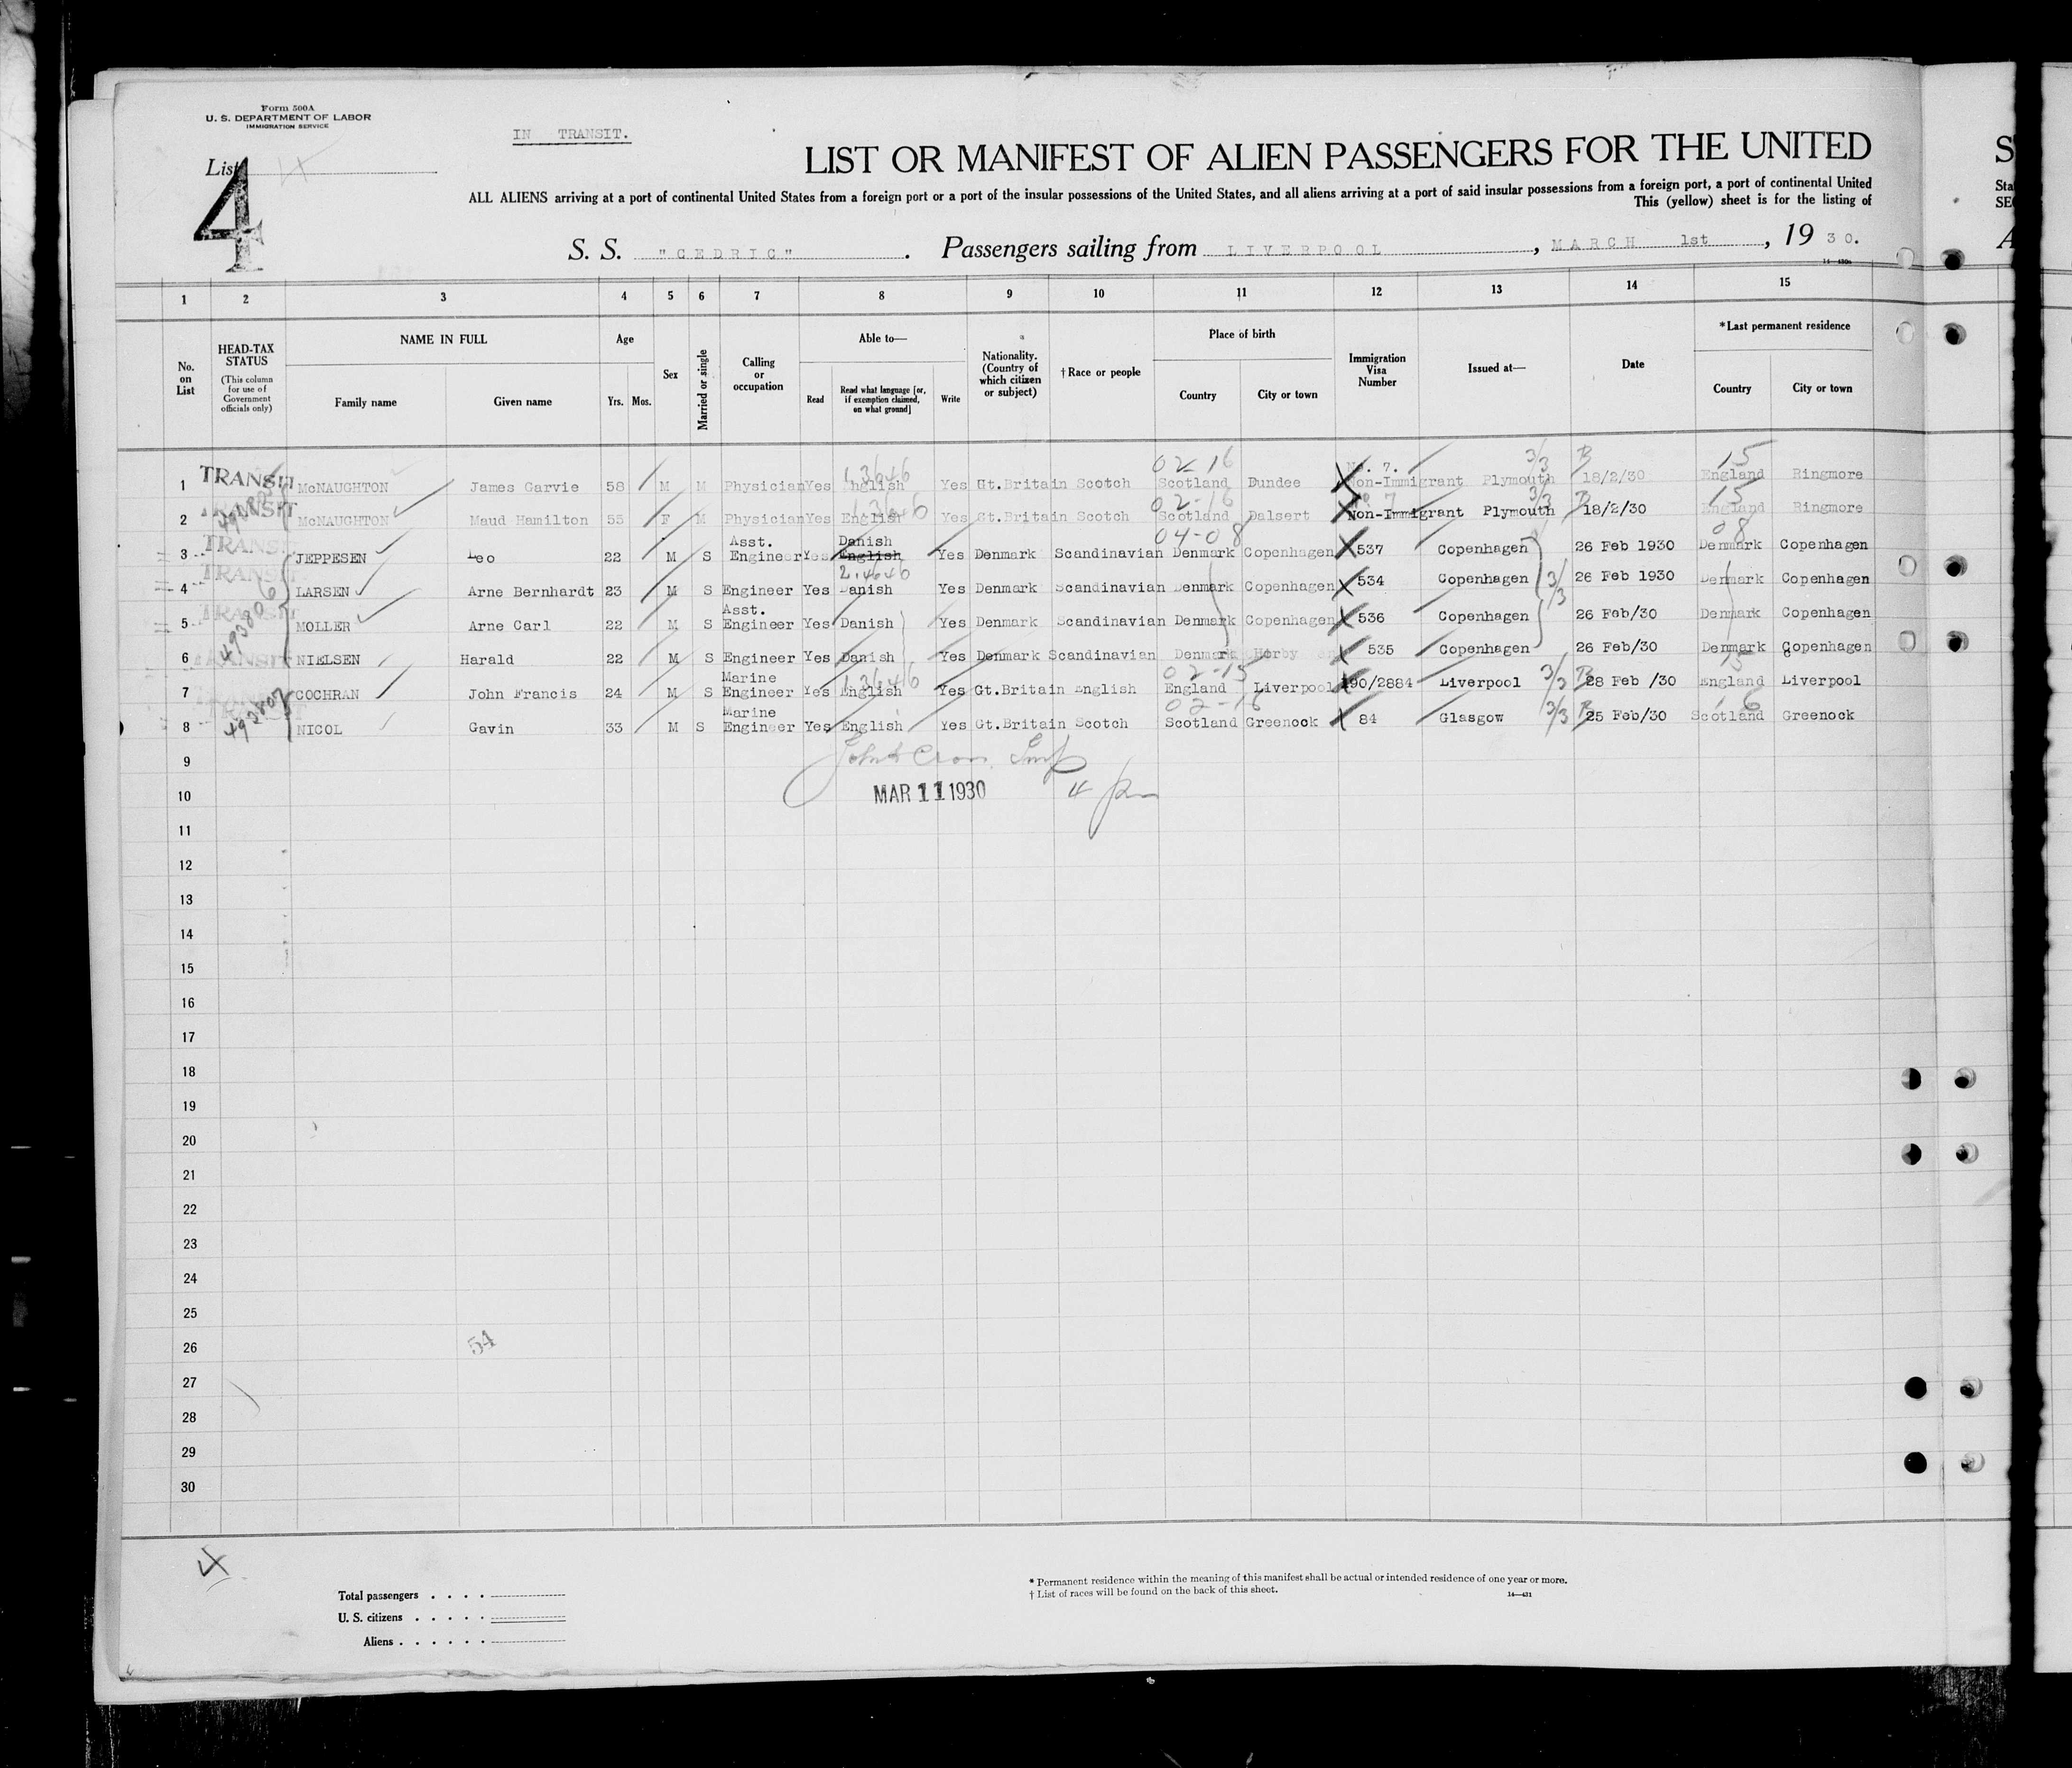 Form 500A
U. S. DEPARTMENT OF LABOR
IMMIGRATION SERVICE
IN TRANSIT.
List 4
4
LIST OR MANIFEST OF ALIEN PASSENGERS FOR THE UNITED
ALL ALIENS arriving at a port of continental United States from a foreign port or a port of the insular possessions of the United States, and all aliens arriving at a port of said insular possessions from a foreign port, a port of continental United
This (yellow) sheet is for the listing of
S. S. "CEDRIC". Passengers sailing from LIVERPOOL, MARCH 1st, 1930.
1 2 3 4 5 6 7 8 9 10 11 12 13 14 15
No. on List
HEAD-TAX STATUS
(This column for use of Government officials only)
NAME IN FULL
Family name Given name
Age
Yrs. Mos.
Sex
Married or single
Calling or occupation
Able to—
Read Read what language [or, if exemption claimed, on what ground] Write
Nationality. (Country of which citizen or subject)
† Race or people
Place of birth
Country City or town
Immigration Visa Number
Issued at—
Date
* Last permanent residence
Country City or town
13646 02-16 3/3 15
1 TRANSIT McNAUGHTON James Garvie 58 M M Physician Yes English Yes Gt.Britain Scotch Scotland Dundee No. 7. Non-Immigrant Plymouth 18/2/30 England Ringmore
13646 02-16 3/3 15
2 TRANSIT McNAUGHTON Maud Hamilton 55 F M Physician Yes English Yes Gt.Britain Scotch Scotland Dalsert No 7 Non-Immigrant Plymouth 18/2/30 England Ringmore
04-08 08
3 TRANSIT JEPPESEN Leo 22 M S Asst. Engineer Yes Danish English Yes Denmark Scandinavian Denmark Copenhagen 537 Copenhagen 26 Feb 1930 Denmark Copenhagen
24640
4 TRANSIT LARSEN Arne Bernhardt 23 M S Engineer Yes Danish Yes Denmark Scandinavian Denmark Copenhagen 534 Copenhagen 3/3 26 Feb 1930 Denmark Copenhagen
5 TRANSIT MOLLER Arne Carl 22 M S Asst. Engineer Yes Danish Yes Denmark Scandinavian Denmark Copenhagen 536 Copenhagen 26 Feb/30 Denmark Copenhagen
493806
6 TRANSIT NIELSEN Harald 22 M S Engineer Yes Danish Yes Denmark Scandinavian Denmark Horby 535 Copenhagen 26 Feb/30 Denmark Copenhagen
13646 02-15 15
7 COCHRAN John Francis 24 M S Marine Engineer Yes English Yes Gt.Britain English England Liverpool 190/2884 Liverpool 3/3 28 Feb /30 England Liverpool
493807 02-16 16
8 NICOL Gavin 33 M S Marine Engineer Yes English Yes Gt.Britain Scotch Scotland Greenock 84 Glasgow 3/3 25 Feb/30 Scotland Greenock
9
10 MAR 11 1930
11
12
13
14
15
16
17
18
19
20
21
22
23
24
25
26 54
27
28
29
30
4
Total passengers
U. S. citizens
Aliens
* Permanent residence within the meaning of this manifest shall be actual or intended residence of one year or more.
† List of races will be found on the back of this sheet.
14—431